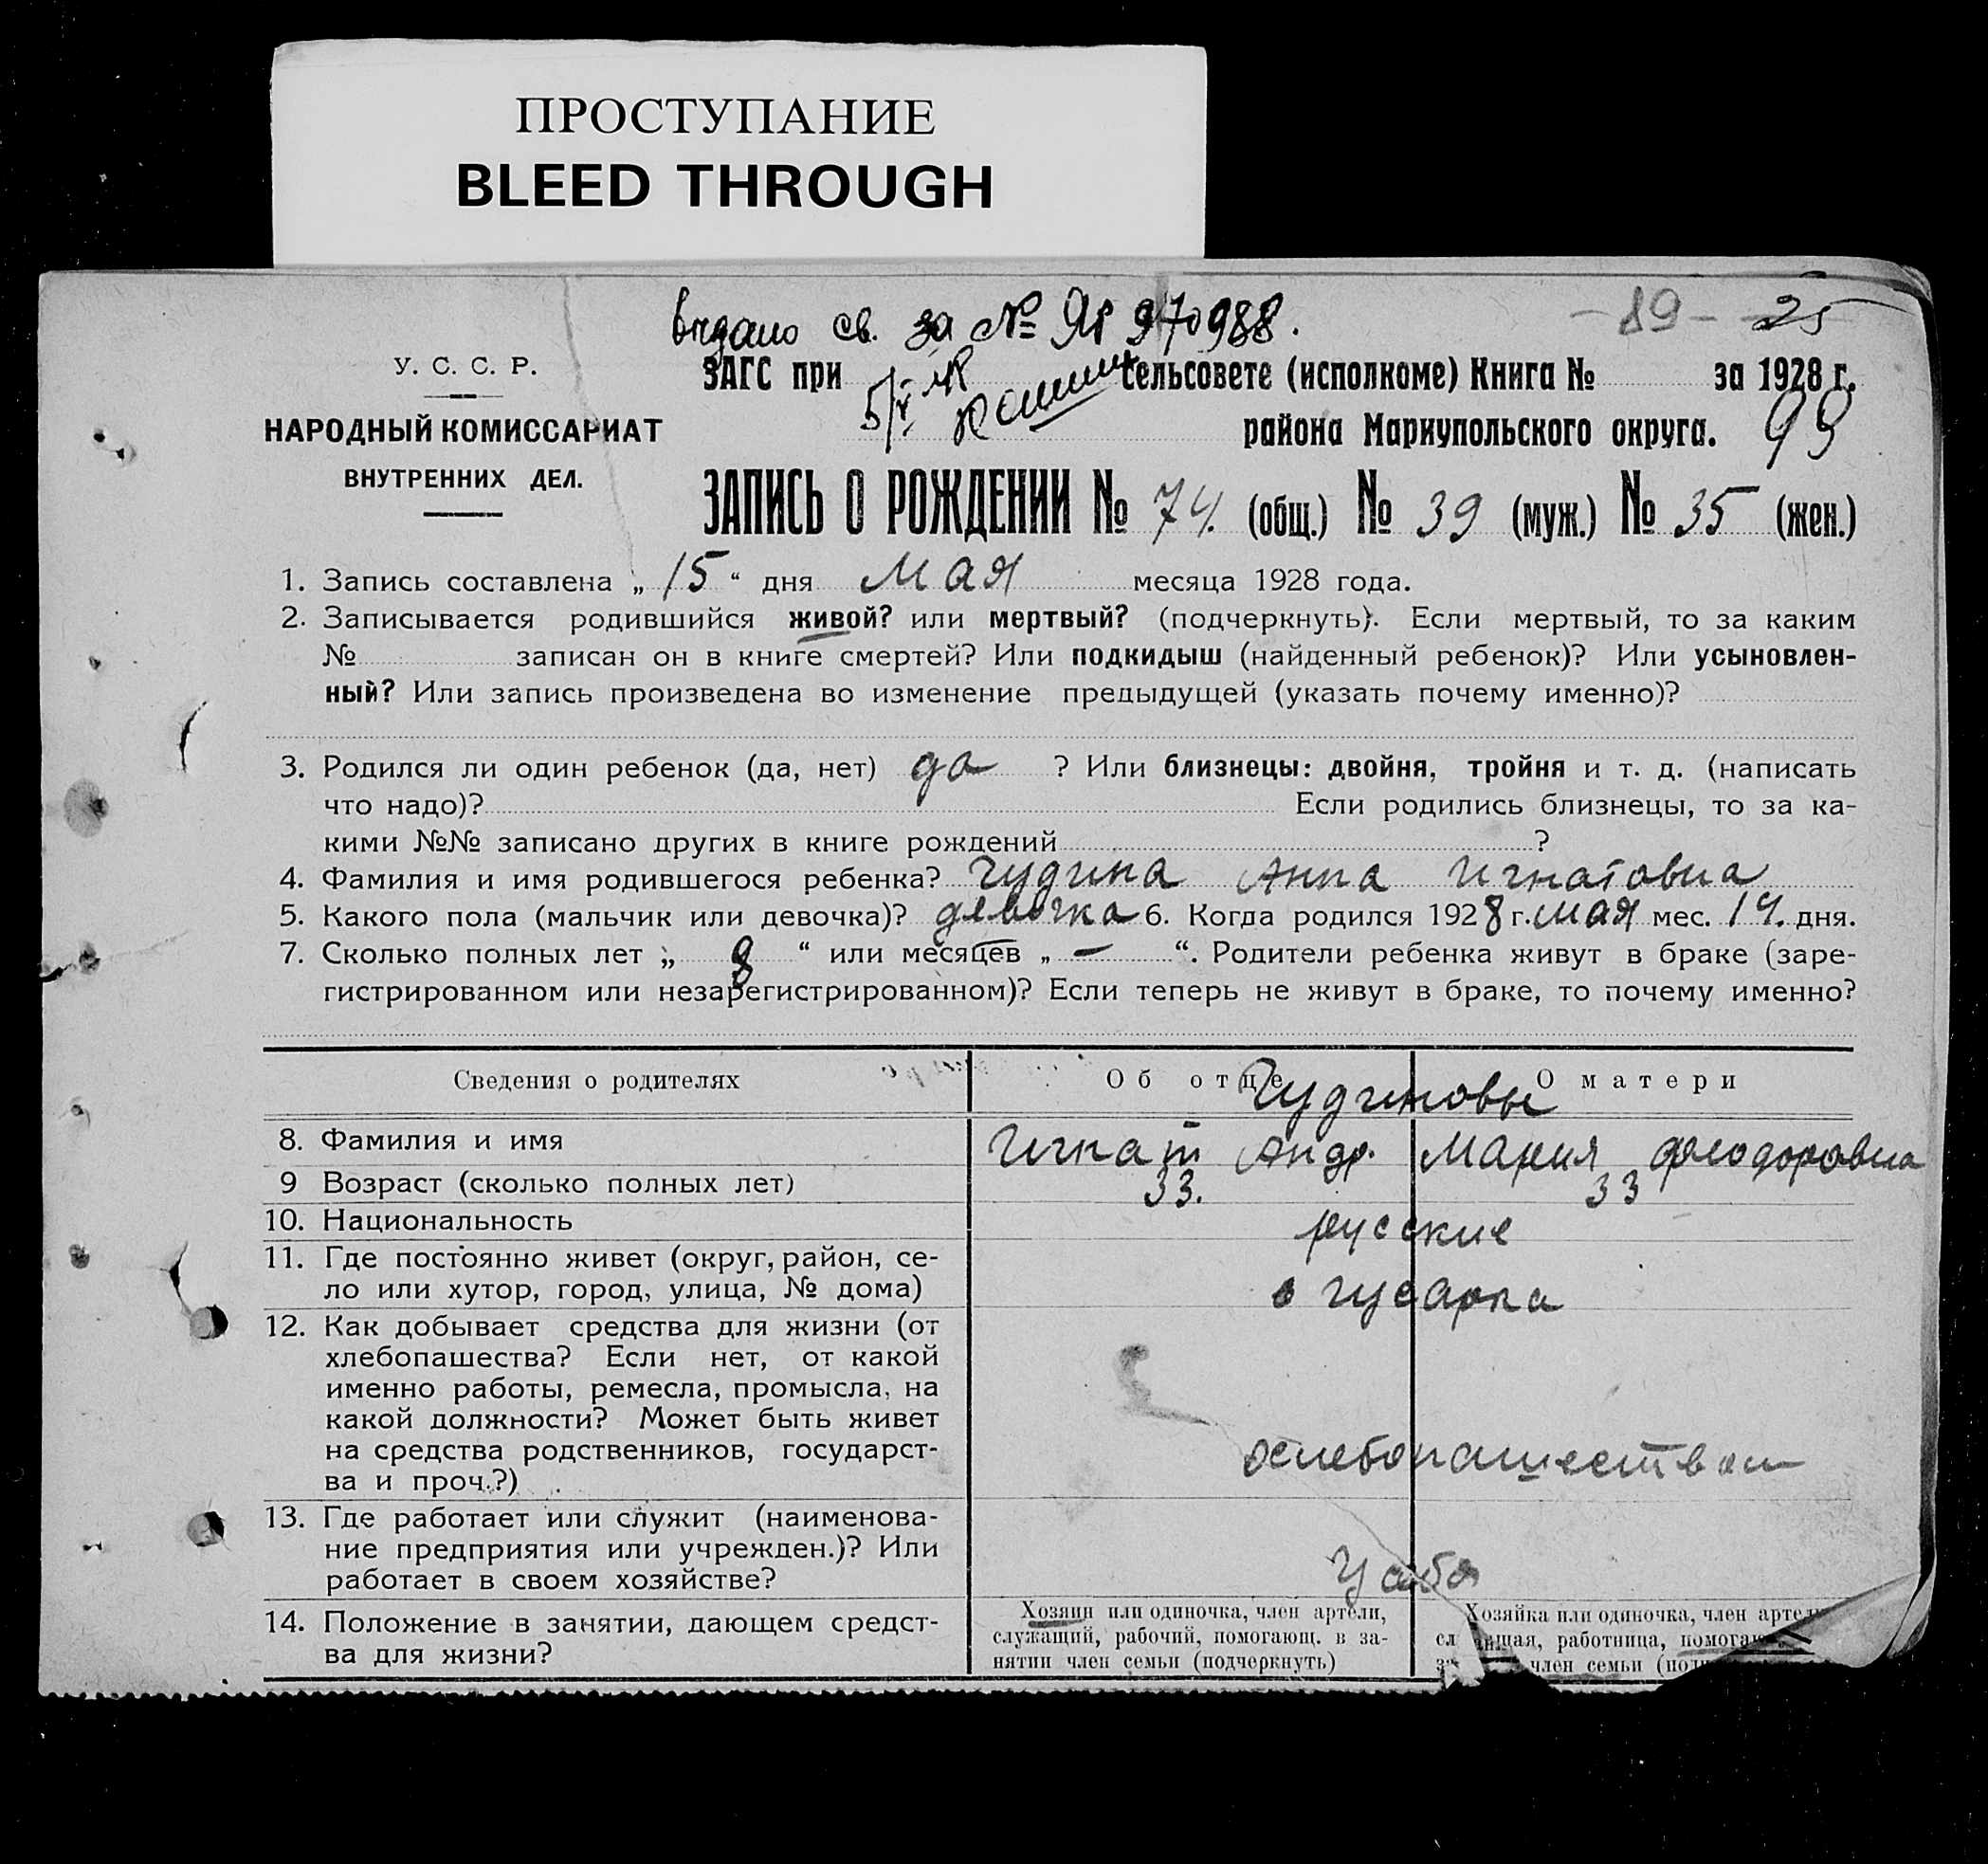 ПРОСТУПАНИЕ
BLEED THROUGH
выдано св. за № ЯР 970988.
- 89 - 25
У. С. С. Р.
НАРОДНЫЙ КОМИССАРИАТ
ВНУТРЕННИХ ДЕЛ.
ЗАГС при сельсовете (исполкоме) Книга № за 1928 г.
района Мариупольского округа. 99
ЗАПИСЬ О РОЖДЕНИИ № 74. (общ.) № 39 (муж.) № 35 (жен.)
1. Запись составлена „ 15 “ дня мая месяца 1928 года.
2. Записывается родившийся живой? или мертвый? (подчеркнуть). Если мертвый, то за каким
№ записан он в книге смертей? Или подкидыш (найденный ребенок)? Или усыновлен-
ный? Или запись произведена во изменение предыдущей (указать почему именно)?
3. Родился ли один ребенок (да, нет) да ? Или близнецы: двойня, тройня и т. д. (написать
что надо)? Если родились близнецы, то за ка-
кими №№ записано других в книге рождений ?
4. Фамилия и имя родившегося ребенка? Чудина Анна Игнатовна
5. Какого пола (мальчик или девочка)? девочка 6. Когда родился 1928 г. мая мес. 14. дня.
7. Сколько полных лет „ 8 “ или месяцев „ — “. Родители ребенка живут в браке (заре-
гистрированном или незарегистрированном)? Если теперь не живут в браке, то почему именно?
Сведения о родителях Об отце О матери
Чудиновы
8. Фамилия и имя Игнат Андр. Мария Феодоровна
9 Возраст (сколько полных лет) 33. 33
10. Национальность русские
11. Где постоянно живет (округ, район, се-
ло или хутор, город, улица, № дома) с Гусарка
12. Как добывает средства для жизни (от
хлебопашества? Если нет, от какой
именно работы, ремесла, промысла, на
какой должности? Может быть живет
на средства родственников, государст-
ва и проч.?) хлебопашеством
13. Где работает или служит (наименова-
ние предприятия или учрежден.)? Или
работает в своем хозяйстве? У себя
14. Положение в занятии, дающем средст-
ва для жизни?
Хозяин или одиночка, член артели,
служащий, рабочий, помогающ. в за-
нятии член семьи (подчеркнуть)
Хозяйка или одиночка, член артели
работница, помогаю
член семьи